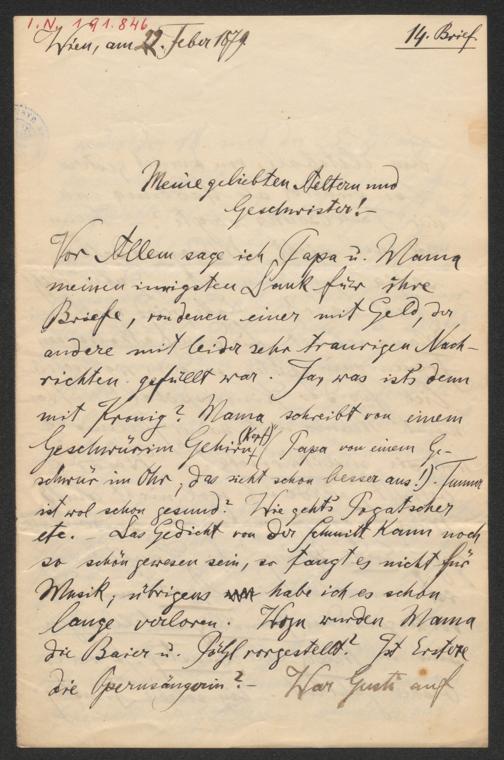 I. N. 191.846
Wien, am 22. Feber 1879.
14. Brief
Meine geliebten Aeltern und
Geschwister!–
Vor Allem sage ich Papa u. Mama
meinen innigsten Dank für ihre
Briefe, von denen einer mit Geld, der
andere mit leider sehr traurigen Nach-
richten gefüllt war. Ja, was ists denn
mit ? Mama schreibt von einem
Geschwür im Gehirn (Kopf) (Papa von einem Ge-
schwür im Ohr, das sieht schon besser aus!).
ist wol schon gesund? Wie gehts Pogatscher
etc. – Das Gedicht von der Schmitt kann noch
so schön gewesen sein, so taugt es nicht für
Musik; übrigens habe ich es schon
lange verloren. wurden Mama
die Baier u. vorgestellt? Ist Erstere
die Opernsängerin? – War Gusti auf